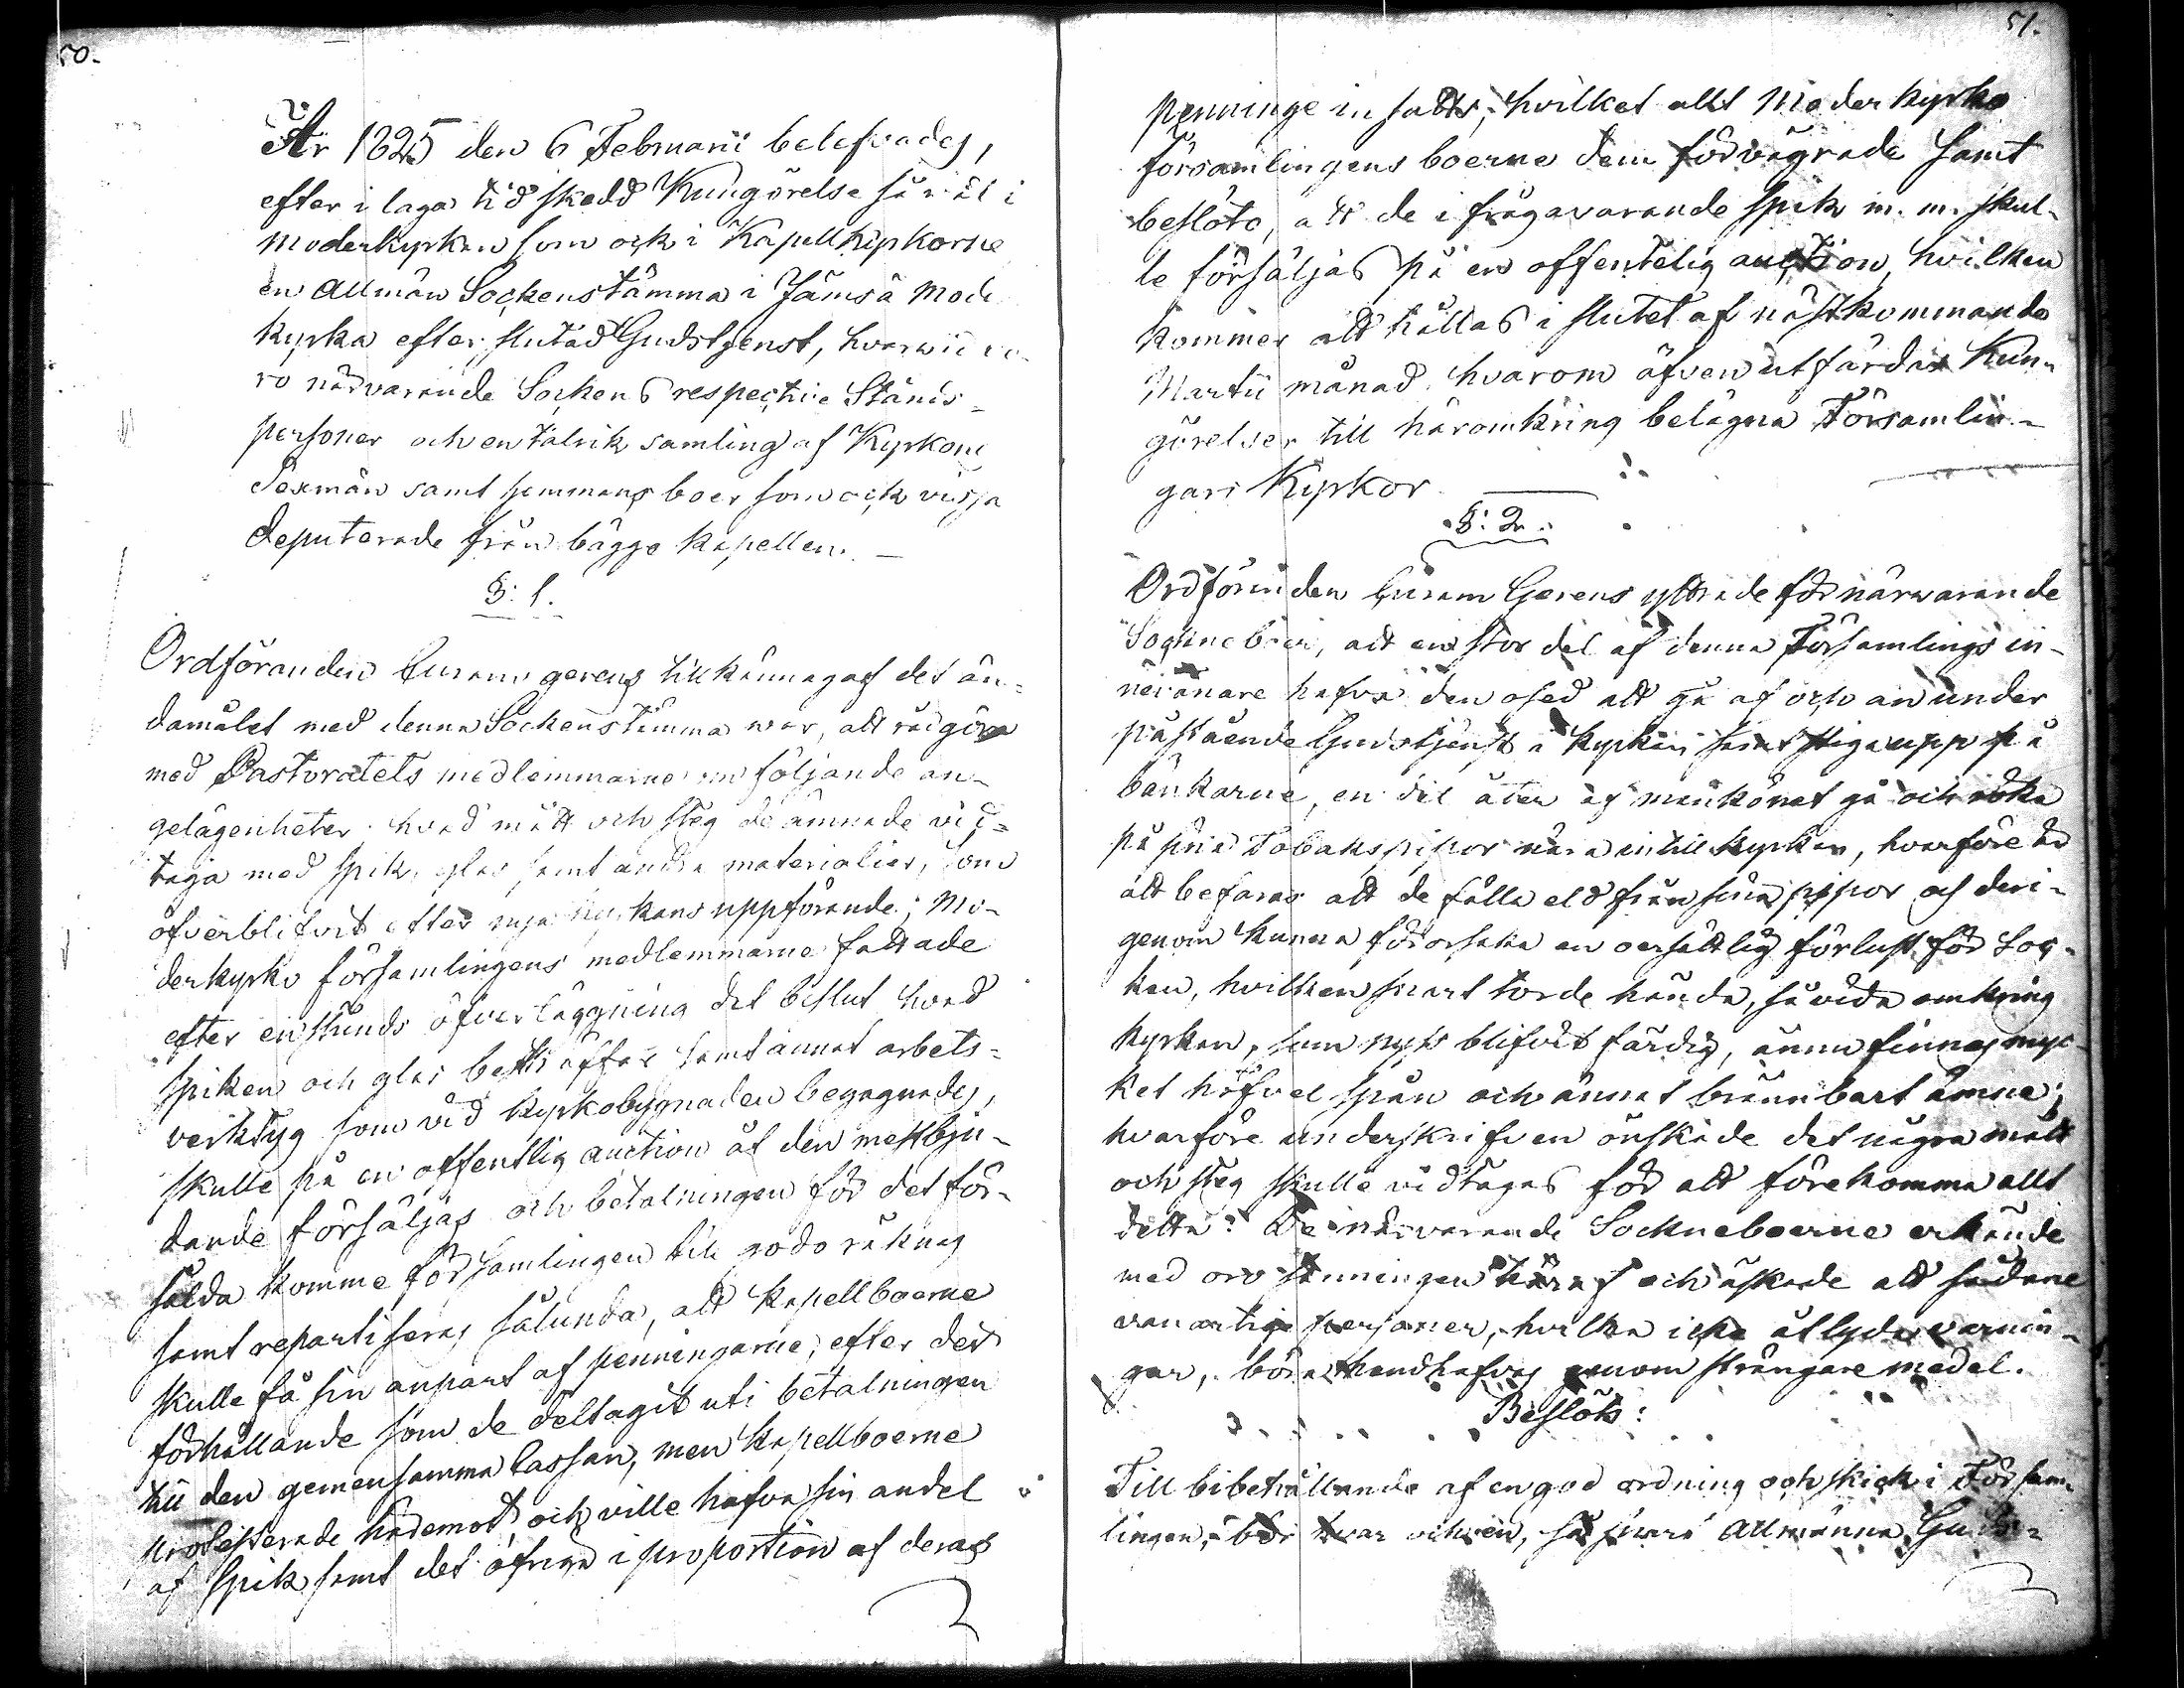 50.
År 1825 den 6 Februarii belefvades,
efter i laga tid skedd Kungörelse så väl i
moderkyrkan som ock i Kapellkyrkorne
en Allmän Sockenstämma i Jämsä Mode
kyrka efter slutad Gudstjenst, hvarwid vo-
ro närvarande Sockens respective Stånds-
personer och en talrik samling af Kyrkone
Sexmän samt hemmans boer som ock vissa
deputerade från bägge kapellen. —
§: 1.
Ordföranden Curam gerens tillkännagaf det än-
damålet med denna Sockenstämma war, att rådgöra
med Pastoratets medlemmarne om följande an-
gelägenheter: hvad mått och steg de ämnade vid-
taga med spik, glas samt andra materialier, som
öfverblifvit efter nya kyrkans uppförande; Mo-
derkyrko församlingens medlemmarne fattade
efter en stunds öfverläggning det beslut hvad
spiken och glas beträffar samt annat arbets-
verktyg som vid kyrkobygnaden begagnades,
skulle på en offentlig auction åt den mestbju-
dande försäljas och betalningen för det för-
sålda komme församlingen till godo räknas
samt repartiseras sålunda, att kapellboerne
skulle få sin anpart af penningarne, efter det
förhållande som de deltagit uti betalningen
till den gemensamma Cassan, men kapellboerne
protesterade häremot och ville hafva sin andel
af spik samt det öfriga i proportion af deras
51.
penninge insatts; hvilket allt Moderkyrko
församlingens boerne dem förvägrade samt
beslöto, att de i frågavarande spik m. m. skul-
le försäljas på en offentelig auction, hvilken
kommer att hållas i slutet af nästkommande
Martii månad, hvarom äfven utfärdas Kun-
görelser till häromkring belägna Församlin-
gars Kyrkor.
§: 2.
Ordföranden Curam Gerens yttrade för närwarande
Sockneboer, att en stor del af denna Församlings in-
nevånare hafva den osed att gå af och an under
påstående Gudstjenst i kyrkan samt stiga upp på
bänkarne, en del åter af mankönet gå och röka
på sina Tobakspipor nära intill kyrkan, hvarföre är
att befaras att de fälla eld från sina pipor och deri-
genom kunna förorsaka en oersättlig förlust för Soc-
ken, hvilken snart torde hända, så vida omkring
kyrkan, som nyss blifvit färdig, ännu finnas myc-
ket höfvel spån och annat brännbart ämne;
hvarföre underskrifven önskade det några mått
och steg skulle vidtagas för att förekomma allt
detta: De närvarande Sockneboerne erkände
med oro sanningen häraf och äskade att sådane
vanartige personer, hvilka icke åtlyda varnin-
gar, böra handhafvas genom strängare medel.
Beslöts:
Till bibehållande af en god ordning och skick i Försam-
lingen, bör hvar och en, så snart Allmänna Guds-